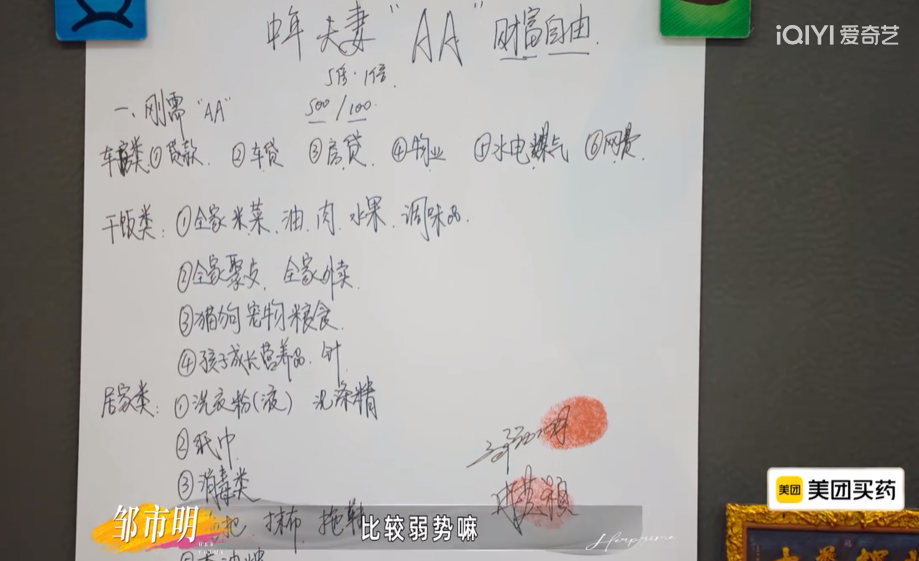 iQIYI 爱奇艺
中年夫妻"AA"财富自由.
5倍·1倍.
一、刚需"AA" 500/100.
车房类①贷款. ②车贷 ③房贷. ④物业 ⑤水电燃气 ⑥网费.
干饭类: ①全家米菜、油、肉、水果、调味品.
②全家聚点、全家外卖.
③猫狗宠物粮食.
④孩子成长营养品. 针
居家类: ①洗衣粉(液) 洗涤精
②纸巾.
③消毒类
美团 美团买药
把. 抹布. 拖
邹市明
比较弱势嘛